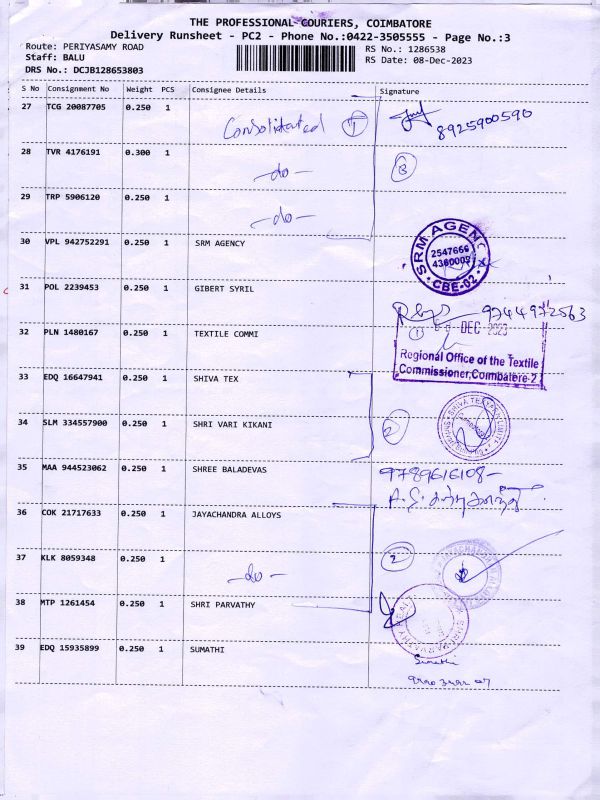 THE PROFESSIONAL COURIERS, COIMBATORE
Delivery Runsheet - PC2 - Phone No.:0422-3505555 - Page No.:3
Route: PERIYASAMY ROAD
RS No.: 1286538
Staff: BALU
RS Date: 08-Dec-2023
DRS No.: DCJB128653803
S No Consignment No Weight PCS Consignee Details Signature
27 TCG 20087705 0.250 1
Consolidated 8925900590
28 TVR 4176191 0.300 1
-do-
29 TRP 5906120 0.250 1
-do-
30 VPL 942752291 0.250 1 SRM AGENCY
SRM AGENCY
2547666
CBE-02
31 POL 2239453 0.250 1 GIBERT SYRIL
9744972563
32 PLN 1480167 0.250 1 TEXTILE COMMI
DEC 2023
Regional Office of the Textile
Commissioner,Coimbatore-2
33 EDQ 16647941 0.250 1 SHIVA TEX
34 SLM 334557900 0.250 1 SHRI VARI KIKANI
2
35 MAA 944523062 0.250 1 SHREE BALADEVAS
9789616108-
36 COK 21717633 0.250 1 JAYACHANDRA ALLOYS
37 KLK 8059348 0.250 1
2
-do-
38 MTP 1261454 0.250 1 SHRI PARVATHY
39 EDQ 15935899 0.250 1 SUMATHI
Sumathi